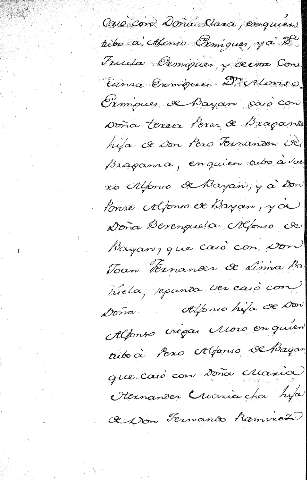 Casó con Doña Clara, en quien
tubo á, Alfonso Ermiguez, y á Dn
Fruela Ermiguez, y
Ermiguez Dn Alonso
Ermiguez de Bayan, casó con
Doña tereza Perez de Braganza
hija de Don Pero Fernandez de
Braganza, en quien tubo á
Alfonso de Bayan, y á Don
Ponse Alfonso de Bayan, y á
Doña Berenguela Alfonso de
Bayan, que casó con Don
Joan Fernandez de Limia
segunda vez casó con
Doña Alfonso hija de Don
Alfonso viegas Moro en quien
tubo á Pero Alfonso de Bayan
que casó con Doña Maria
Hernandez Maria cha hija
de Don Fernando Ramirez